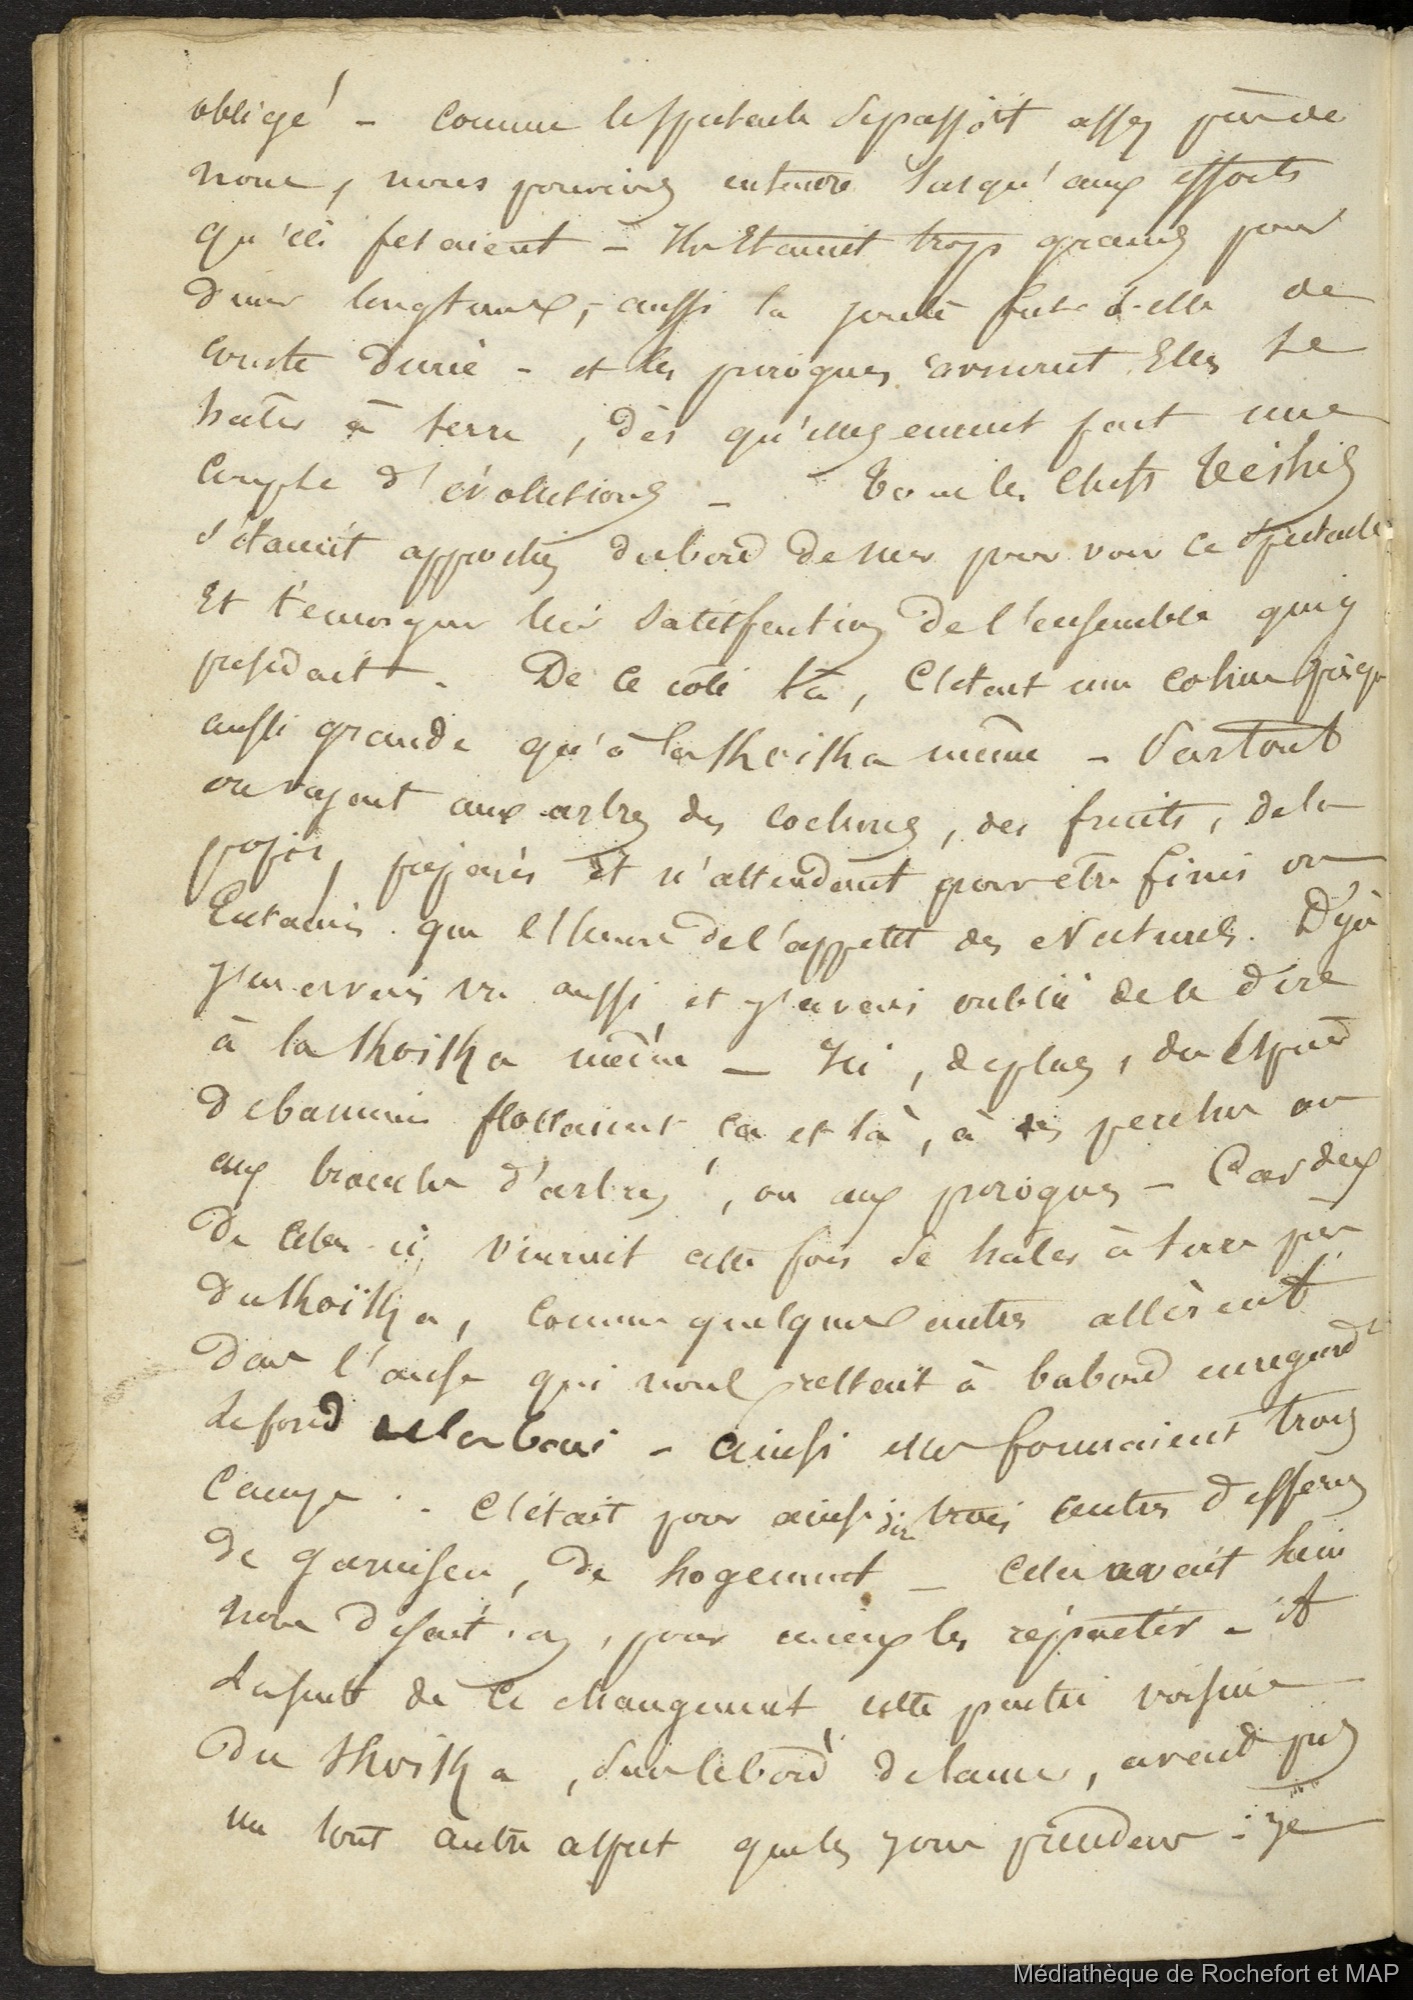 obligé - comme le spectacle se passoit assez près de
nous, nous pouvions entendre jusqu'aux efforts
qu'ils fesaient - Ils étaient trop grands pour
durer longtems, aussi la joute fut-elle de
courte durée - et les pirogues vinrent Elles se
haler à terre, dès qu'elles eurent fait une
couple d'évolutions - Tous les chefs Teishis
s'étaient approchés du bord de mer pour voir ce spectacle
Et témoigner leur satisfaction de l'ensemble qui y
présidait - De ce côté là, C'était une cohue presque
aussi grande qu'à la Khoïka même - Partout
on voyait aux arbres des cochons, des fruits, de la
popoi, préparés Et n'attendant pour être finis ou
Entamés que l'heure de l'appetit des Naturels. Déjà
j'en avais vu aussi et j'avais oublié de le dire
à la Khoïka même - Ici, de plus, des Espèces
de bannières flottaient çà et là, à des perches ou
aux branches d'arbres, ou aux pirogues - Car deux
de celles-ci vinrent cette fois se haler à terre près
du Khoïka, comme quelques autres allèrent
dans l'anse qui nous restait à babord en regardt
le fond de la baie - ainsi elles formaient trois
camps - C'était pour ainsi dire trois centres différens
de garnison, de logement - Cela avait lieu
nous disait-on, pour mieux les répartir - Et
de ce changement cette partie voisine
du Khoïka, sur le bord de la mer, avait pris
un tout autre aspect que les jours précédens - Je
Médiathèque de Rochefort et MAP